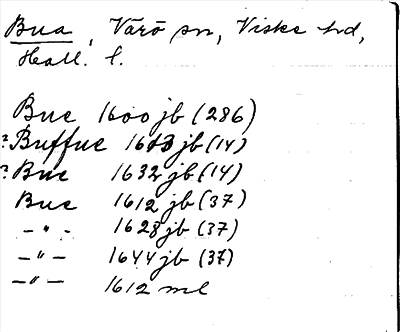 Bua, Värö sn, Viske hd,
Hall. l.
Bue 1600 jb (286)
? Buffue 1613 jb (14)
? Bue 1632 jb (14)
Bue 1612 jb (37)
– " – 1628 jb (37)
– " – 1644 jb (37)
– " – 1612 ml